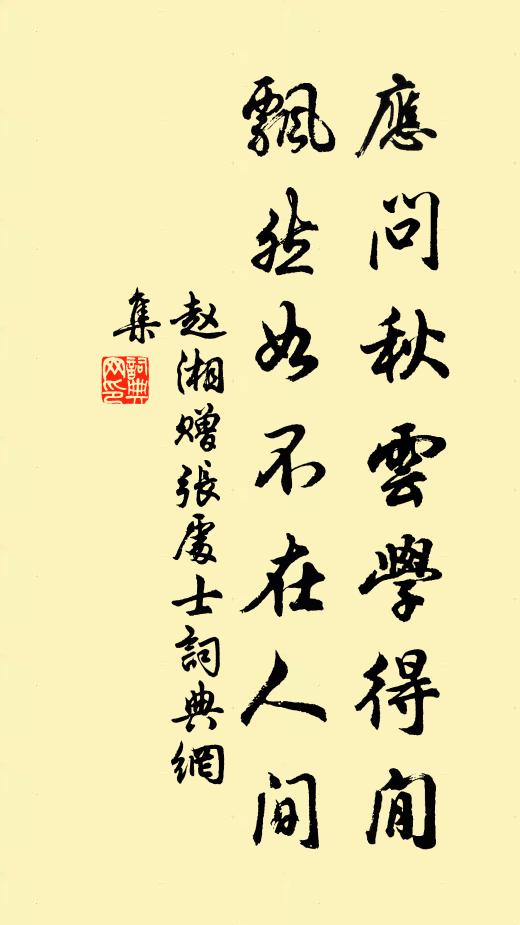 應問秋雲學得閒
飄然如不在人间
赵湘赠張處士詞典網
集
詞典
网印